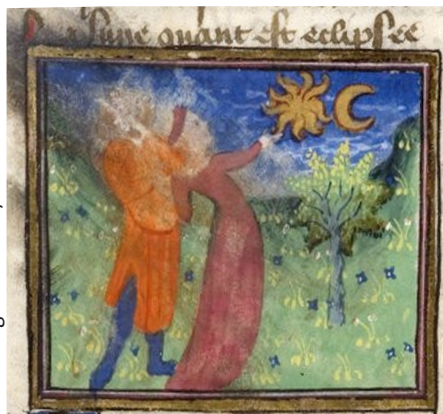 La lune quant est eclipsee